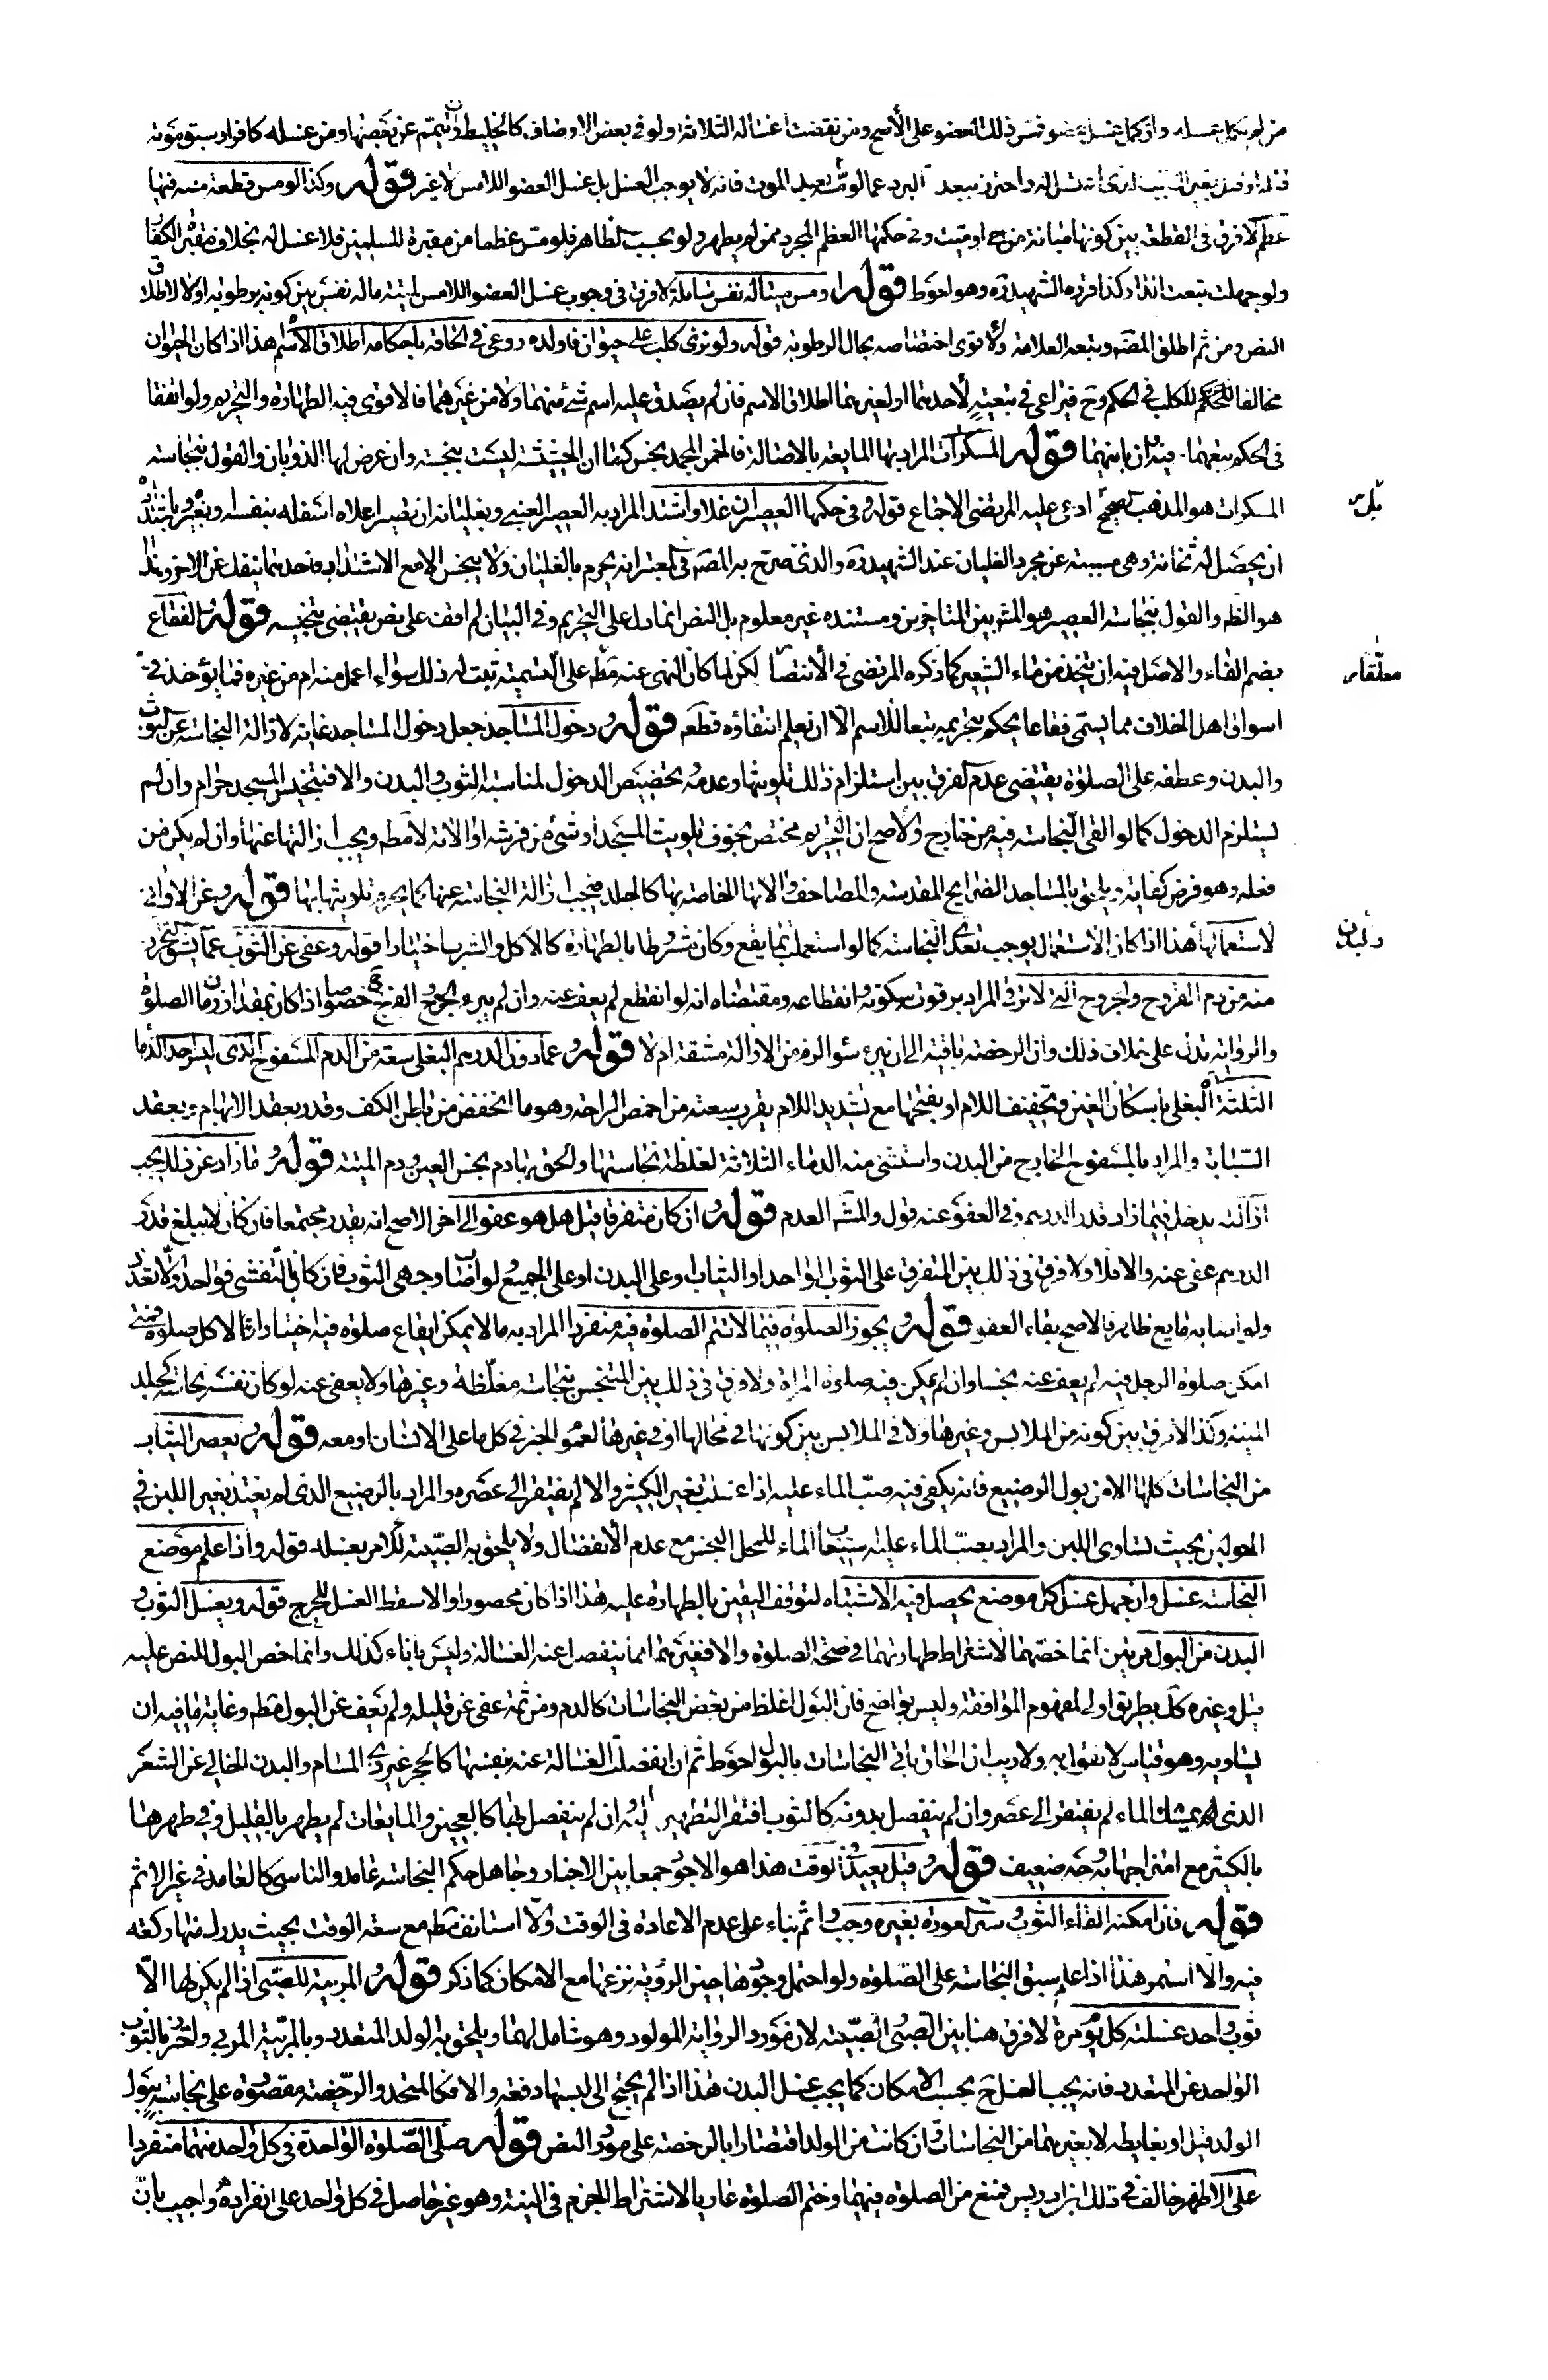 من لم يكمل غسله وان كمل غسل عضو فمس ذلك العضو على الأصح ومن نقضت اغساله الثلاثة ولو في بعض الاوصاف كالخليط ومن تيمم عن بعضها ومن غسله كافر او سبق موته
قتله او قتل بغير السبب الذي اغتسل له واحترز ببعد البرد عما لو مسه بعيد الموت فانه لا يوجب الغسل بل غسل العضو اللامس لا غير قوله وكذا لو مس قطعة منه فيها
عظم لا فرق في القطعة بين كونها مبانة من حي او ميت وفي حكمها العظم المجرد ممن لم يطهر ولو بحسب الظاهر فلو مس عظما من مقبرة المسلمين فلا غسل له بخلاف مقبرة الكفار
ولو جهلت تبعت الدار وكذا قرره الشهيد ره وهو احوط قوله او مس ميتا له نفس سائلة لا فرق في وجوب غسل العضو اللامس لميتة ما له نفس بين كونه برطوبة او لا لاطلاق
النص ومن ثم اطلق المصه وتبعه العلامة والأقوى اختصاصه بحال الرطوبة قوله ولو نزى كلب على حيوان فاولده روعي في الحاقه باحكامه اطلاق الاسم هذا اذا كان الحيوان
مخالفا للكلب في الحكم وح فيراعى في تبعيته لأحدهما او لغيرهما اطلاق الاسم فان لم يصدق عليه اسم شئ منهما ولا من غيرهما فالاقوى فيه الطهارة والتحريم ولو اتفقا
في الحكم تبعهما وان باينهما قوله المسكرات المراد بها المايعة بالاصالة فالخمر المجمد نجس كما ان الحشيشة ليست بنجسة وان عرض لها الذوبان والقول بنجاسة
المسكرات هو المذهب الصحيح ادعى عليه المرتضى الاجماع قوله وفي حكمها العصير ان غلا واشتد المراد به العصير العنبي وبغليانه ان يصير اعلاه اسفله بنفسه وبغيره وباشتداده
ان يحصل له ثخانة وهي مسببة عن مجرد الغليان عند الشهيد ره والذي صرح به المصه في المعتبر انه يحرم بالغليان ولا ينجس الا مع الاشتداد فاحدهما ينفك عن الاخر وهذا
هو الظ والقول بنجاسة العصير هو المشه بين المتاخرين ومستنده غير معلوم بل النص انما دل على التحريم وفي البيان لم اقف على نص يقتضي تنجيسه قوله والفقاع
بضم الفاء والاصل فيه ان يتخذ من ماء الشعير كما ذكره المرتضى في الأنتصار لكن لما كان النهي عنه معلقا على التسمية ثبت له ذلك سواء اعمل منه ام من غيره فما يؤخذ في
اسواق اهل الخلاف مما يسمى فقاعا يحكم بتحريمه تبعا للاسم الا ان يعلم انتفاؤه قطعه قوله ودخول المساجد جعل دخول المساجد غاية لازالة النجاسة عن الثوب
والبدن وعطفه على الصلوة يقتضي عدم الفرق بين استلزام ذلك تلويثها وعدمه وتخصيص الدخول لمناسبة الثوب والبدن والا فتنجيس المسجد حرام وان لم
يستلزم الدخول كما لو القى النجاسة فيه من خارج والأصح ان التحريم مختص بخوف تلويث المسجد او شئ من فرشه او الاته لا مطه ويجب ازالتها عنها وان لم يكن من
فعله وهو فرض كفاية ويلحق بالمساجد الضرايح المقدسة والمصاحف والاتها الخاصة بها كالجلد فيجب ازالة النجاسة عنها كما يحرم تلويثها بها قوله وعن الاواني
لاستعمالها هذا اذا كان الاستعمال يوجب تعدى النجاسة كما لو استعملت بمايع وكان مشروطا بالطهارة كالاكل والشرب اختيارا قوله وعفى عن الثوب والبدن عما يشق التحرز
منه من دم القروح والجروح التي لا ترقى المراد برقوها سكونه وانقطاعه ومقتضاه انه لو انقطع لم يعف عنه وان لم يبرء الجرح والقرح خصوصا اذا كان بمقدار زمان الصلوة
والرواية تدل على خلاف ذلك وان الرخصة باقية الى ان يبرء سواء لزم من الازالة مشقة ام لا قوله وعما دون الدرهم البغلي سعة من الدم المسفوح الذي ليس احد الدماء
الثلثة البغلي باسكان الغين وتخفيف اللام او بفتحها مع تشديد اللام يقرب سعته من اخمص الراحة وهو ما انخفض من باطن الكف وقدر بعقد الابهام وبعقد
السبابة والمراد بالمسفوح الخارج من البدن واستثنى منه الدماء الثلاثة لغلظة نجاستها والحق بها دم نجس العين ودم الميتة قوله وما زاد عن ذلك يجب
ازالته يدخل فيما زاد قدر الدرهم وفي العفو عنه قول والمشه العدم قوله وان كان متفرقا قيل هل هو عفو الى اخر الاصح انه يقدر مجتمعا فان كان لا يبلغ قدر
الدرهم عفى عنه والا فلا ولا فرق في ذلك بين المتفرق على الثوب الواحد او الثياب وعلى البدن او على الجميع ولو اصاب وجهي الثوب فان كان بالتفشي فواحد والا تعدد
ولو اصابه مايع طاهر فالاصح بقاء العفو قوله ويجوز الصلوة فيما لا تتم الصلوة فيه منفردا المراد به ما لا يمكن ايقاع صلوة فيه اختيارا لا كل صلوة فمتى
امكن صلوة الرجل فيه لم يعف عنه نجسا وان لم يمكن فيه صلوة المراة ولا فرق في ذلك بين المتنجس بنجاسة مغلظة وغيرها ولا يعفى عنه لو كان نفسه نجاسة كجلد
الميتة وكذا لا فرق بين كونه من الملابس وغيرها ولا في الملابس بين كونها في محالها او في غيرها لعموم الخبر في كل ما على الانسان او معه قوله ويعصر الثياب
من النجاسات كلها الا من بول الرضيع فانه يكفي فيه صب الماء عليه اذا غسلت بغير الكثير والا لم يفتقر الى عصره والمراد بالرضيع الذي لم يغتذ بغير اللبن في
الحولين بحيث يساوى اللبن والمراد بصب الماء عليه استيعاب الماء للمحل النجس مع عدم الأنفصال ولا يلحق به الصبية للامر بغسله قوله واذا علم موضع
النجاسة غسل وان جهل غسل كل موضع يحصل فيه الاشتباه لتوقف اليقين بالطهارة عليه هذا اذا كان محصورا والا سقط الغسل للحرج قوله ويغسل الثوب و
البدن من البول مرتين انما خصهما لاشتراط طهارتهما في صحة الصلوة والا فغيرهما مما ينفصل عنه الغسالة وليس باناء كذلك وانما خص البول للنص عليه
قيل وغيره كك بطريق اولى لمفهوم الموافقة وليس بواضح فان البول اغلظ من بعض النجاسات كالدم ومن ثمه عفى عن قليله ولم يعف عن البول مطه وغاية ما فيه ان
يساويه وهو قياس لا نقول به ولا ريب ان الحاق باقي النجاسات بالبول احوط ثم ان انفصلت الغسالة عنه بنفسها كالحجر غير ذي المسام والبدن الخالي عن الشعر
الذي يمسك الماء لم يفتقر الى عصر وان لم ينفصل بدونه كالثوب افتقر التطهير اليه وان لم ينفصل بها كالعجين والمايعات لم يطهر بالقليل وفي طهرها
بالكثير مع امتزاجها به وجه ضعيف قوله وقيل يعيد في الوقت هذا هو الاجود جمعا بين الاخبار وجاهل حكم النجاسة عامد والناسي كالعامد في غير الاثم
قوله فان امكنه القاء الثوب وستر العورة بغيره وجب واتم بناء على عدم الاعادة في الوقت والا استانف مطه مع سعة الوقت بحيث يدرك منها ركعة
فيه والا استمر هذا اذا علم سبق النجاسة على الصلوة ولو احتمل وجودها حين الرؤية نزعها مع الامكان كما ذكر قوله والمربية للصبي اذا لم يكن لها الا
ثوب واحد غسلته كل يوم مرة لا فرق هنا بين الصبى والصبية لان مورد الرواية المولود وهو شامل لهما ويلحق به الولد المتعدد وبالمربية المربي واحترز بالثوب
الواحد عن المتعدد فانه يجب الغسل ح بحسب الامكان كما يجب غسل البدن هذا اذا لم يحتج الى لبسها دفعة والا فكالمتحد والرخصة مقصورة على نجاسته ببول
الولد قيل او بغايطه لا بغيرهما من النجاسات وان كانت من الولد اقتصارا بالرخصة على مورد النص قوله صلى الصلوة الواحدة في كل واحد منهما منفردا
على الاظهر خالف في ذلك ابن ادريس فمنع من الصلوة فيهما وحتم الصلوة عاريا لاشتراط الجزم في النية وهو غير حاصل في كل واحد على انفراده واجيب بان